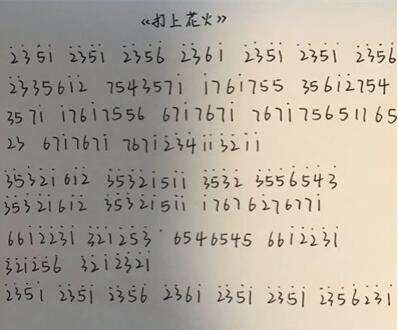 《打上花火》
2351 2351 2356 2361 2351 2351 2356
2335612 7543571 1761755 35612754
3571 17617556 6717671 7671756511765
23 6717671 76712341132 11
35321612 35321511 3532 3556543
35321612 35321511 1767627677i
6612231 321253 6546545 6612231
321256 3212321
2351 2351 2356 2361 2351 2351 2356231